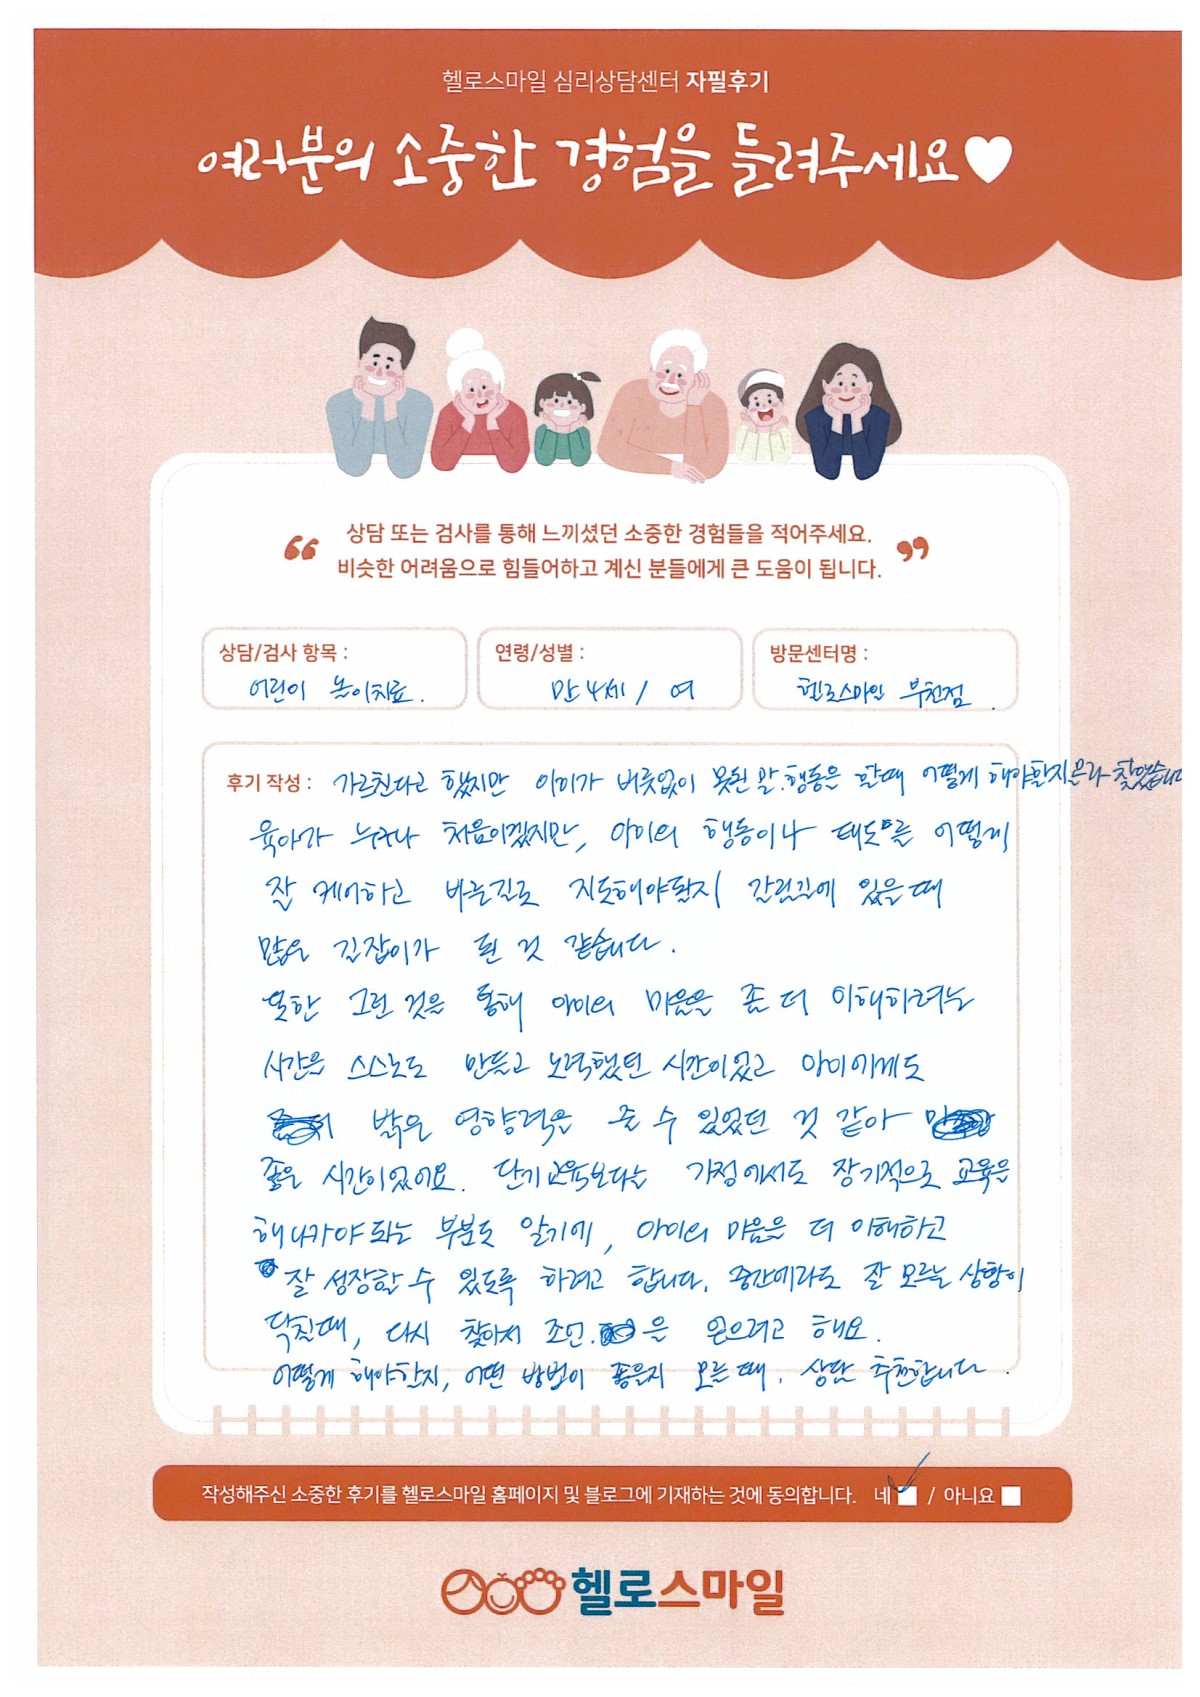 헬로스마일 심리상담센터 자필후기
여러분의 소중한 경험을 들려주세요♥
“ 상담 또는 검사를 통해 느끼셨던 소중한 경험들을 적어주세요. ”
비슷한 어려움으로 힘들어하고 계신 분들에게 큰 도움이 됩니다.
상담/검사 항목 :
어린이 놀이치료.
연령/성별 :
만 4세 / 여
방문센터명 :
헬로스마일 부천점.
후기 작성 : 가르친다고 했지만 아이가 버릇없이 못된 말.행동을 할때 어떻게 해야할지 몰라 찾았습니다
육아가 누구나 처음이겠지만, 아이의 행동이나 태도를 어떻게
잘 케어하고 바른길로 지도해야할지 갈림길에 있을 때
많은 길잡이가 된 것 같습니다.
또한 그런 것을 통해 아이의 마음을 좀 더 이해하려는
시간을 스스로도 만들고 노력했던 시간이었고 아이에게도
밝은 영향력을 줄 수 있었던 것 같아
좋은 시간이었어요. 단기교육보다는 가정에서도 장기적으로 교육을
해나가야 되는 부분도 알기에, 아이의 마음을 더 이해하고
잘 성장할 수 있도록 하려고 합니다. 중간에라도 잘 모르는 상황이
닥칠때, 다시 찾아서 조언.을 얻으려고 해요.
어떻게 해야할지, 어떤 방법이 좋을지 모를 때. 상담 추천합니다.
작성해주신 소중한 후기를 헬로스마일 홈페이지 및 블로그에 기재하는 것에 동의합니다. 네 / 아니요
헬로스마일